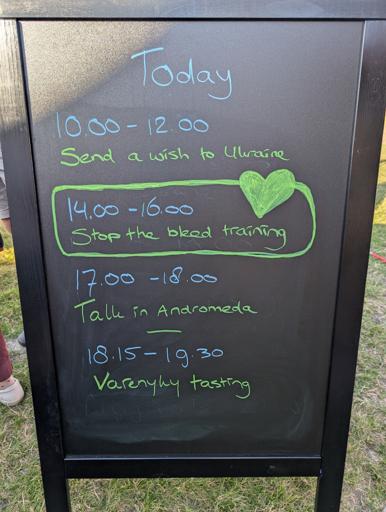 Today
10.00 - 12.00
Send a wish to Ukraine
14.00 - 16.00
Stop the bleed training
17.00 - 18.00
Talk in Andromeda
18.15 - 19.30
Varenyky tasting